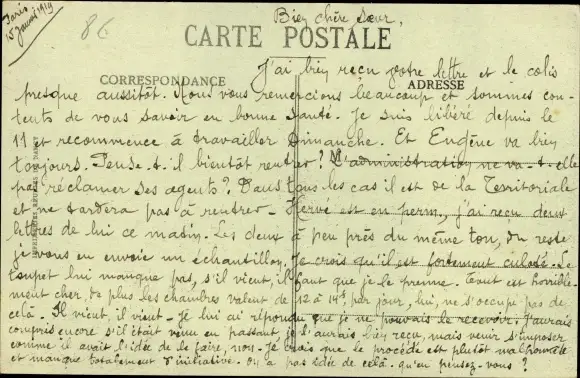 Paris
15 Janvier 1919
86
Bien chère Sœur,
CARTE POSTALE
CORRESPONDANCE
ADRESSE
J'ai bien reçu votre lettre et le colis
presque aussitôt. Nous vous remercions beaucoup et sommes con-
tents de vous savoir en bonne santé. Je suis libéré depuis le
11 et recommence à travailler Dimanche. Et Eugène va bien
toujours. Pense-t-il bientôt rentrer? L'administration ne va-t-elle
pas réclamer ses agents? Dans tous les cas il est de la Territoriale
et ne tardera pas à rentrer - Hervé est en perm., j'ai reçu deux
lettres de lui ce matin. Les deux à peu près du même ton, du reste
je vous en envoie un échantillon. Je crois qu'il est fortement culoté. Le
toupet lui manque pas, s'il vient, il faut que je le prenne. Tout est horrible-
ment cher, de plus les chambres valent de 12 à 14f par jour, lui, ne s'occupe pas de
celà. Il vient, il vient - Je lui ai répondu que je ne pouvais le recevoir. J'aurais
compris encore s'il était venu en passant je l'aurais bien reçu, mais venir s'imposer
comme il avait l'idée de le faire, non - Je crois que le procédé est plutôt malhonnête
et manque totalement d'initiative. On a pas idée de celà - qu'en pensez-vous?